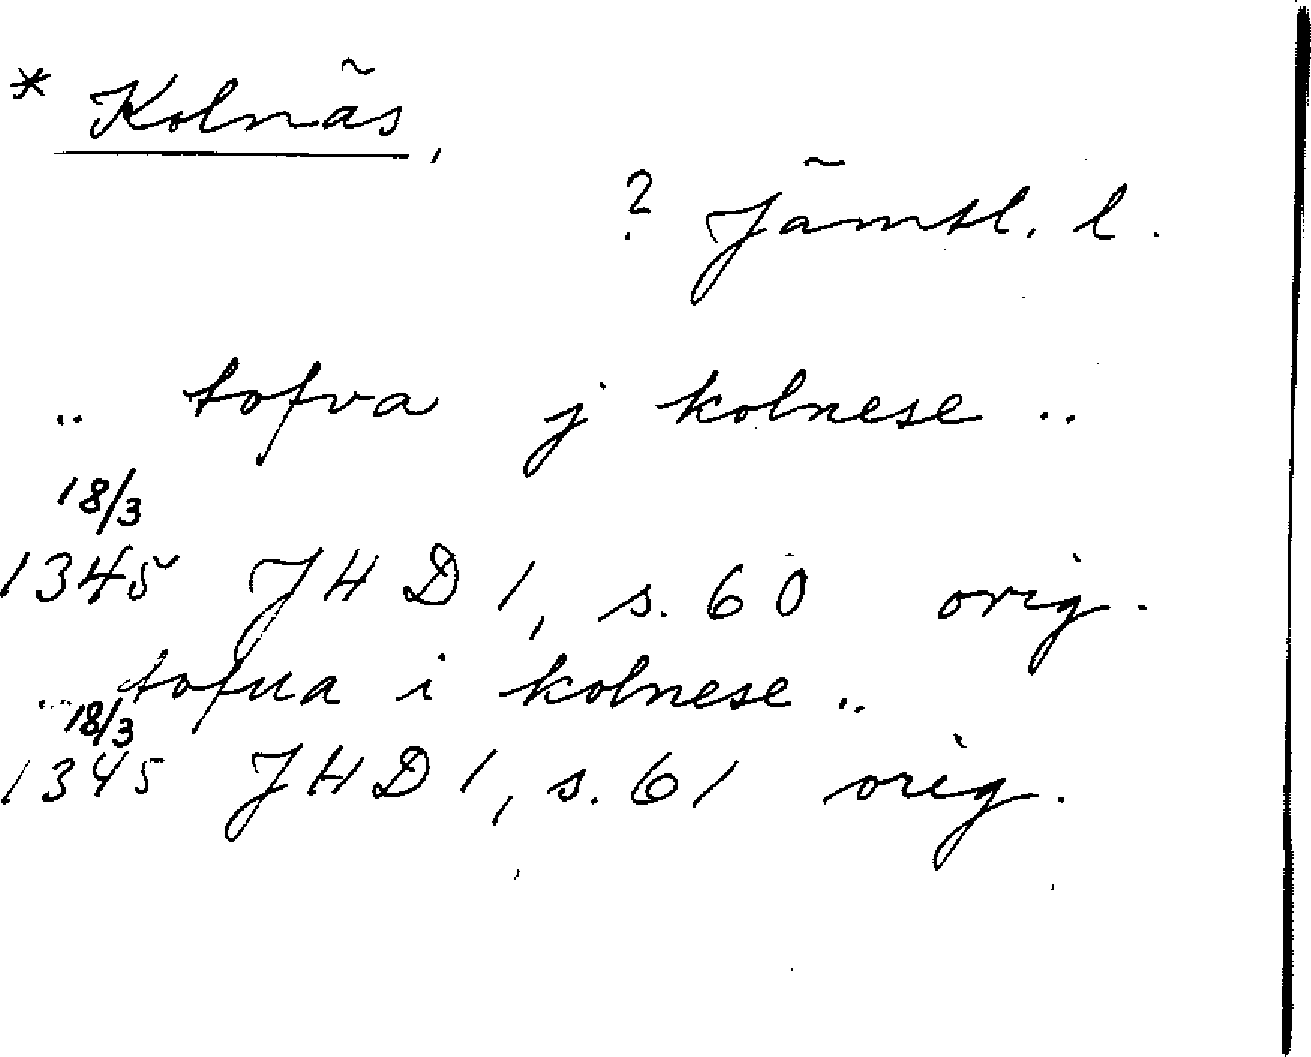 * Kolnäs,
? Jämtl. l.
.. tofva j kolnese ..
18/3
1345 JHD 1, s. 60 orig.
.. tofua i kolnese ..
18/3
1345 JHD 1, s. 61 orig.